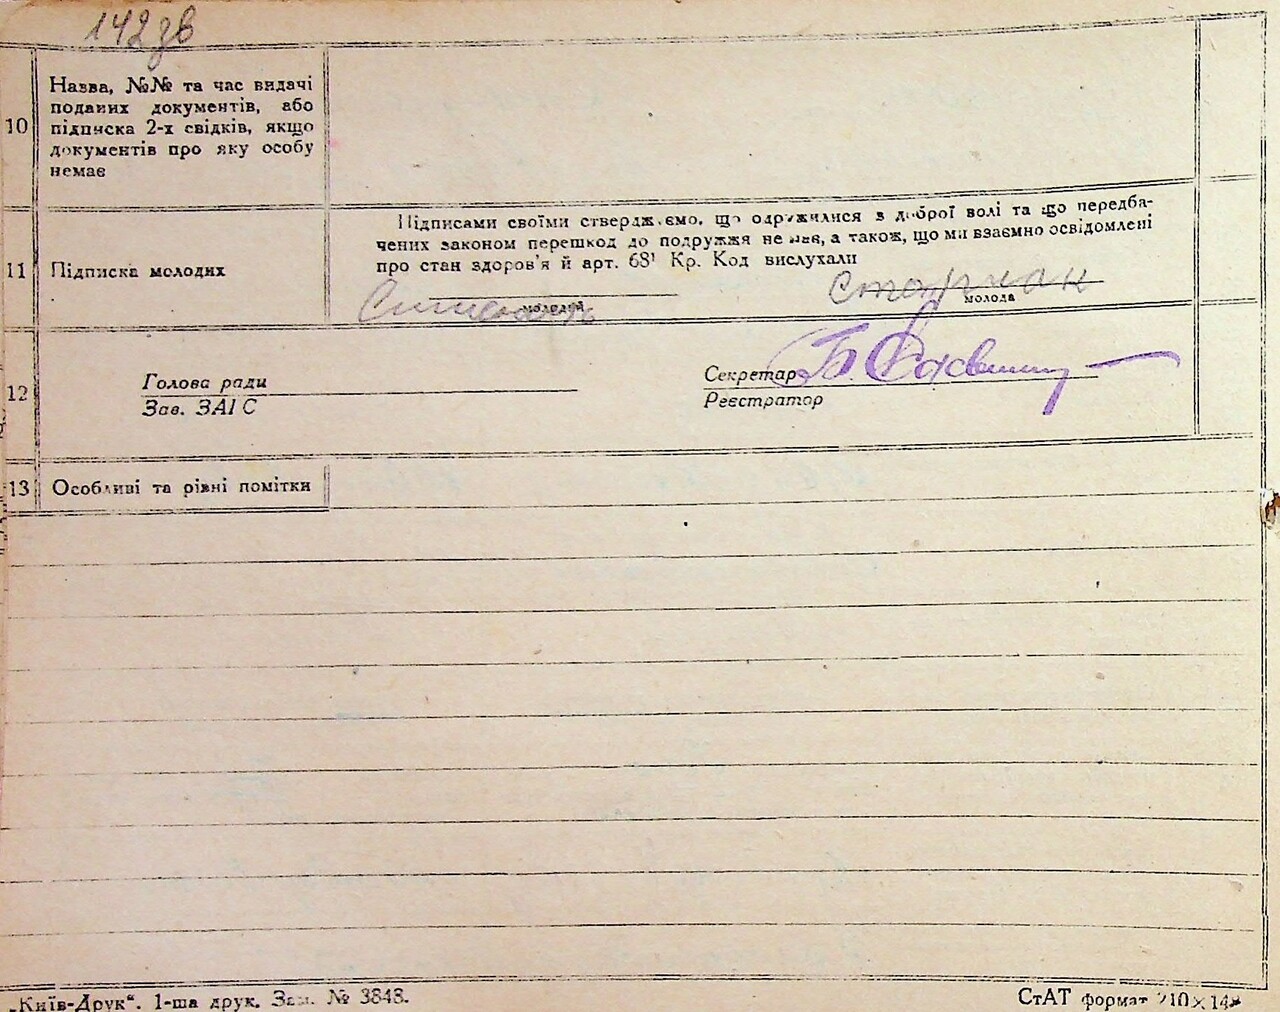 142зв
10
Назва, №№ та час видачі
поданих документів, або
підписка 2-х свідків, якщо
документів про яку особу
немає
11
Підписка молодих
Підписами своїми стверджуємо, що одружилися з доброї волі та що передба-
чених законом перешкод до подружжя не має, а також, що ми взаємно освідомлені
про стан здоров'я й арт. 68¹ Кр. Код вислухали
молодий
молода
12
Голова ради
Зав. ЗАГС
Секретар
Реєстратор
13
Особливі та рівні помітки
„Київ-Друк“. 1-ша друк. Зам. № 3848.
СтАТ формат 210×148